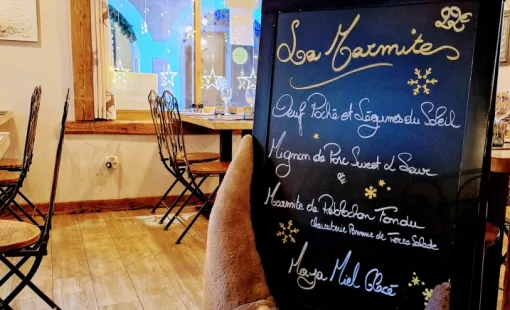 22€
La Marmite
Oeuf Poché et Légumes du Soleil
Mignon de Porc Sweet & Sour
Marmite de Reblochon Fondu
Charcuterie Pomme de Terre Salade
Maya Miel Glacé